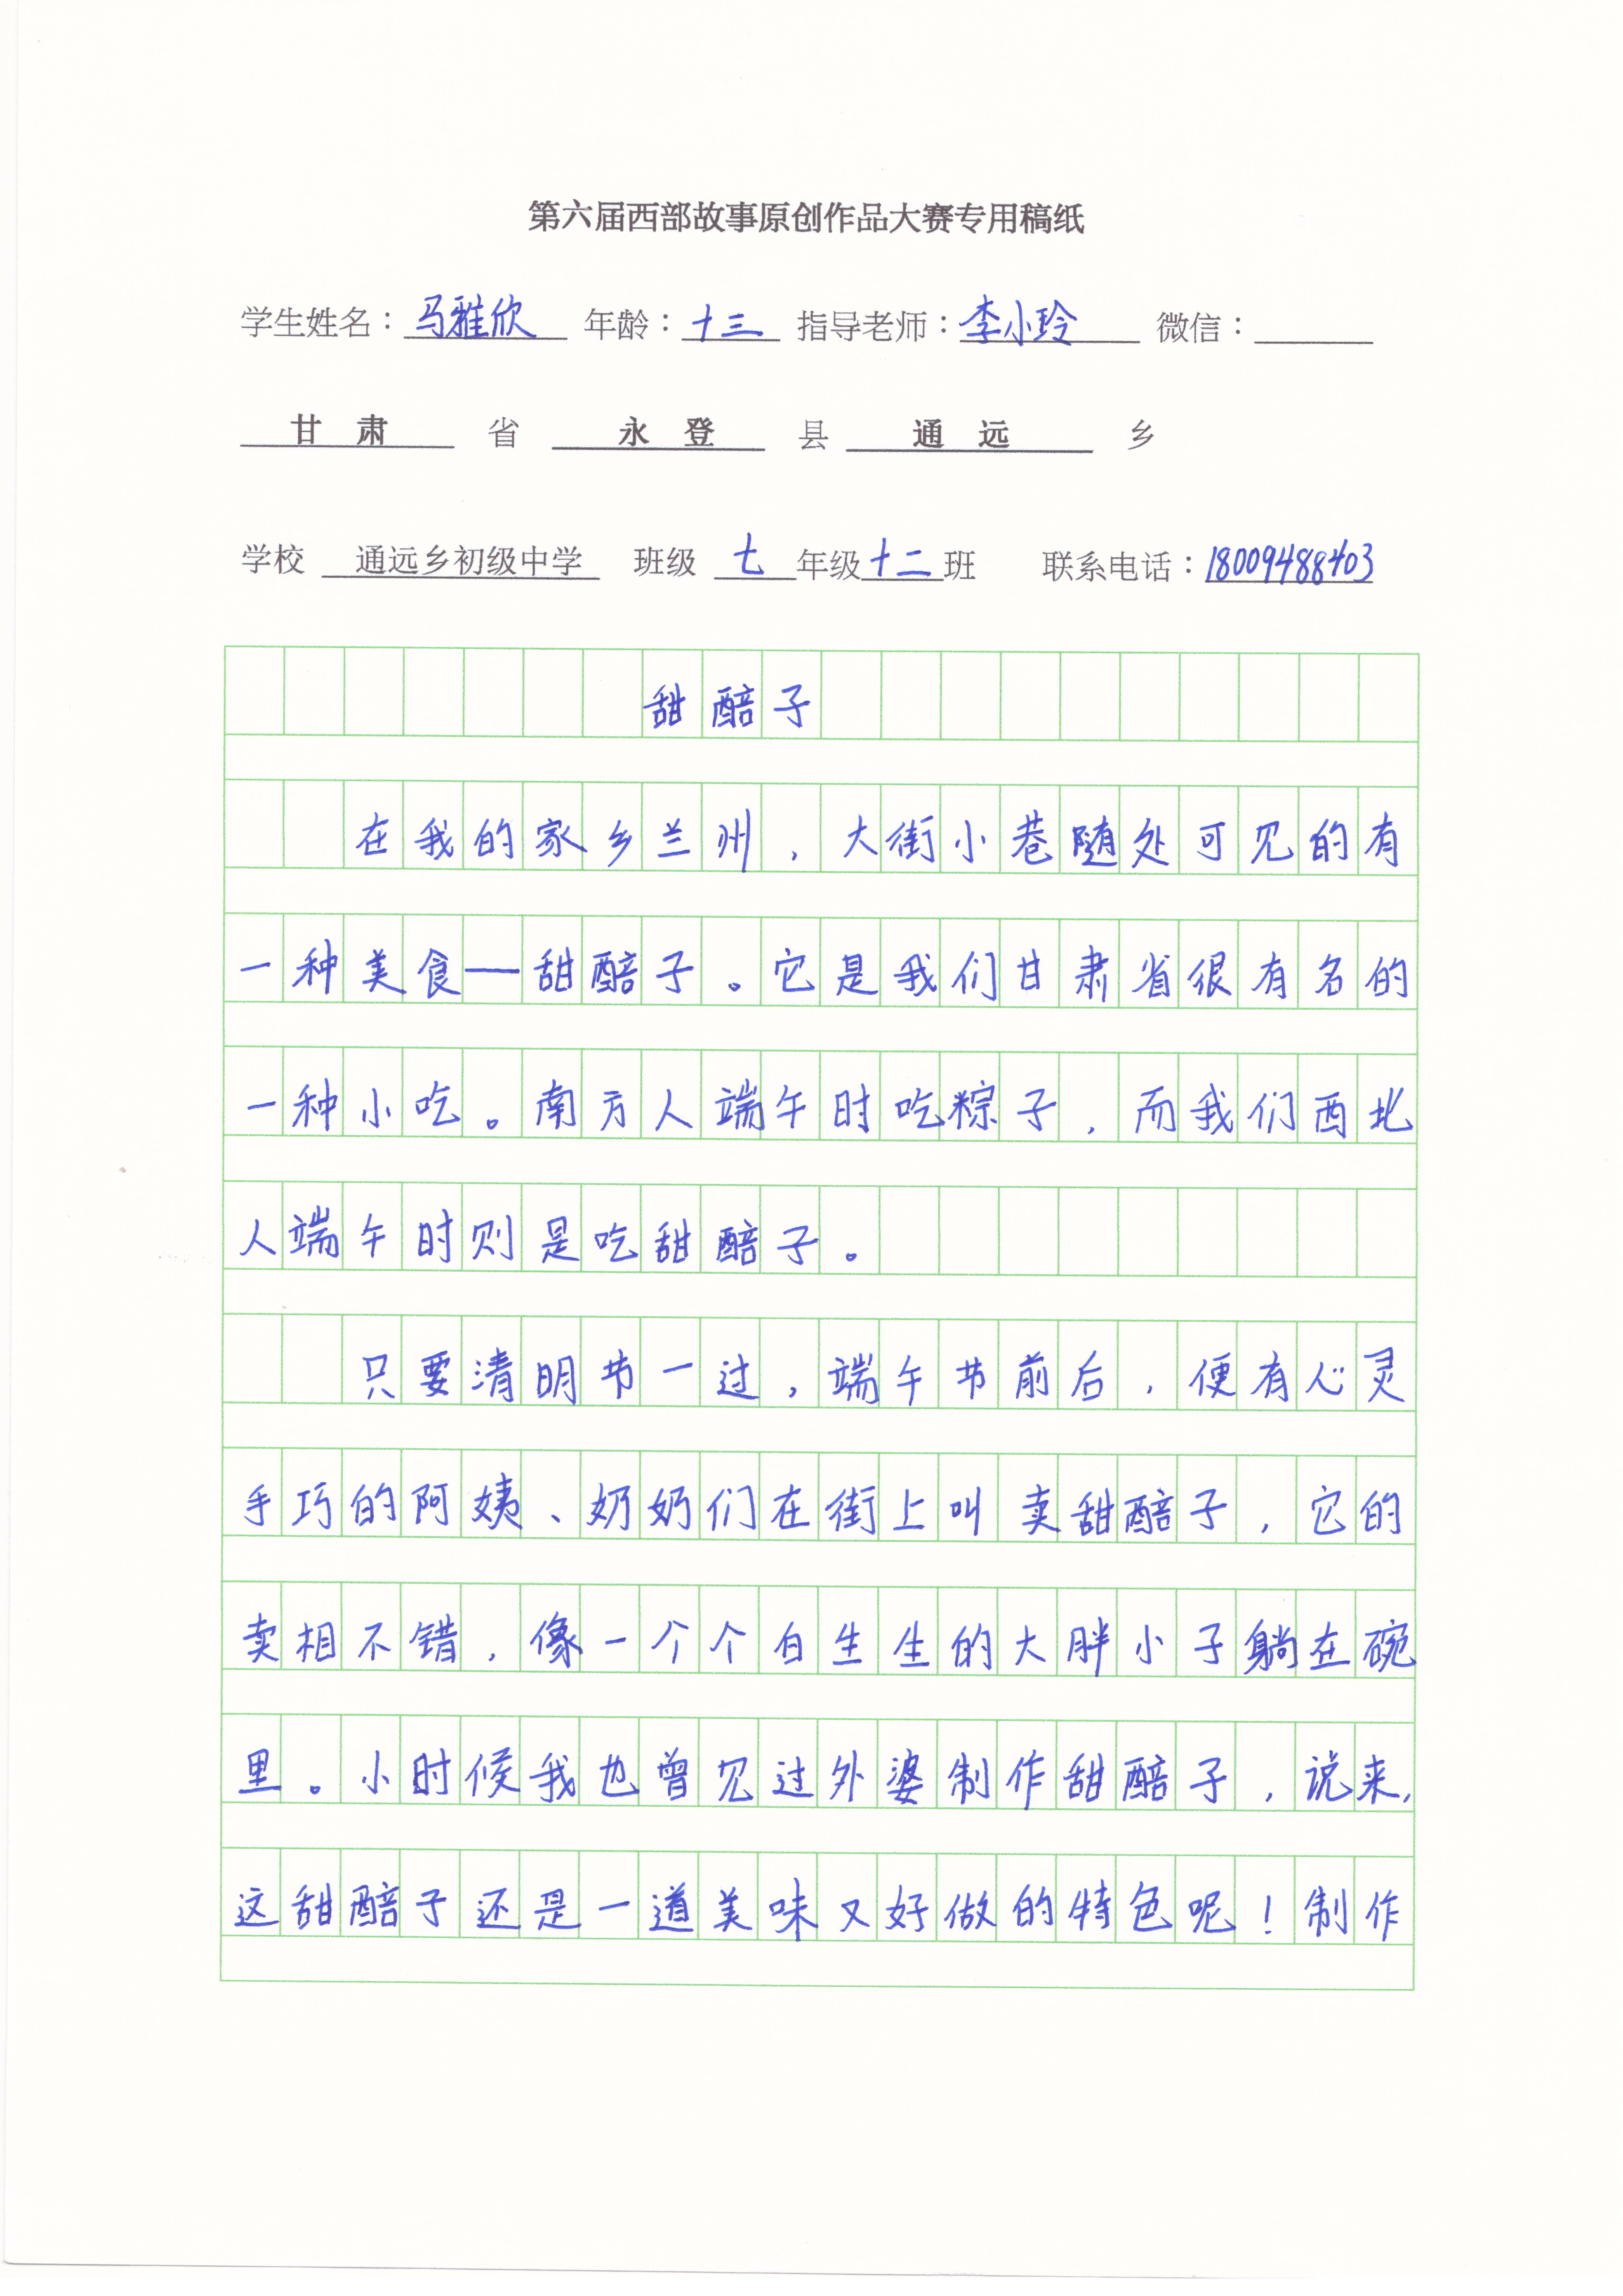 第六届西部故事原创作品大赛专用稿纸
学生姓名：马雅欣 年龄：十三 指导老师：李小玲 微信：
甘肃 省 永登 县 通远 乡
学校 通远乡初级中学 班级 七 年级 十二 班 联系电话：18009488403
甜醅子
在我的家乡兰州，大街小巷随处可见的有
一种美食—甜醅子。它是我们甘肃省很有名的
一种小吃。南方人端午时吃粽子，而我们西北
人端午时则是吃甜醅子。
只要清明节一过，端午节前后，便有心灵
手巧的阿姨、奶奶们在街上叫卖甜醅子，它的
卖相不错，像一个个白生生的大胖小子躺在碗
里。小时候我也曾见过外婆制作甜醅子，说来，
这甜醅子还是一道美味又好做的特色呢！制作